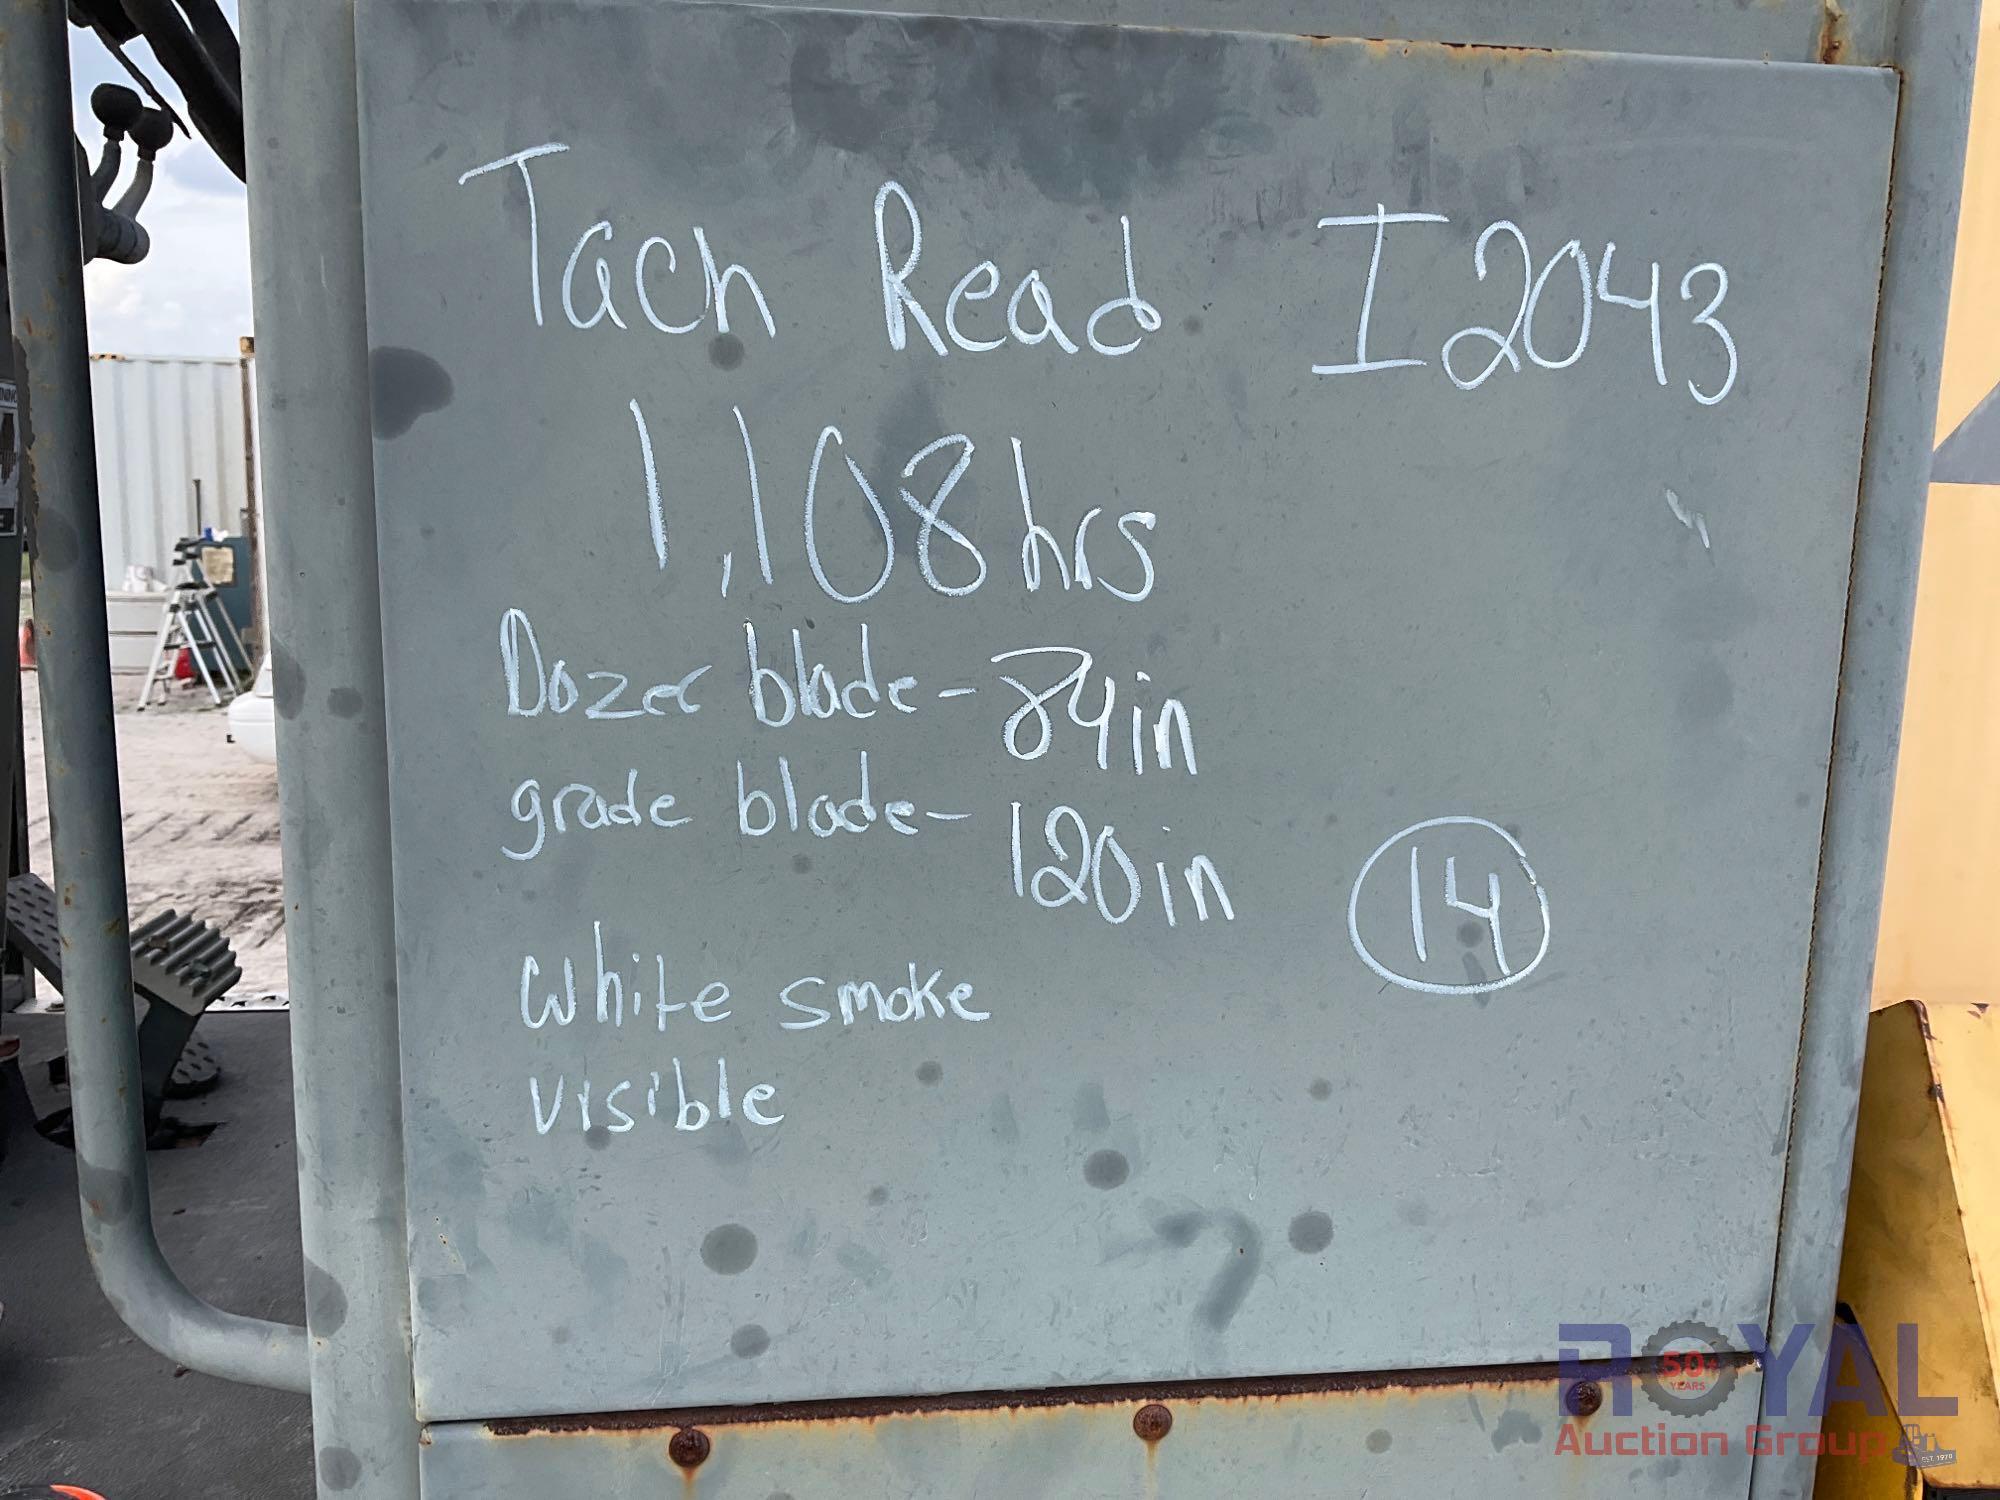 Tach Read I2043
1,108hrs
Dozer blade - 84in
grade blade - 120in
14
White smoke
visible
ROYAL
50+
YEARS
Auction Group
EST. 1970